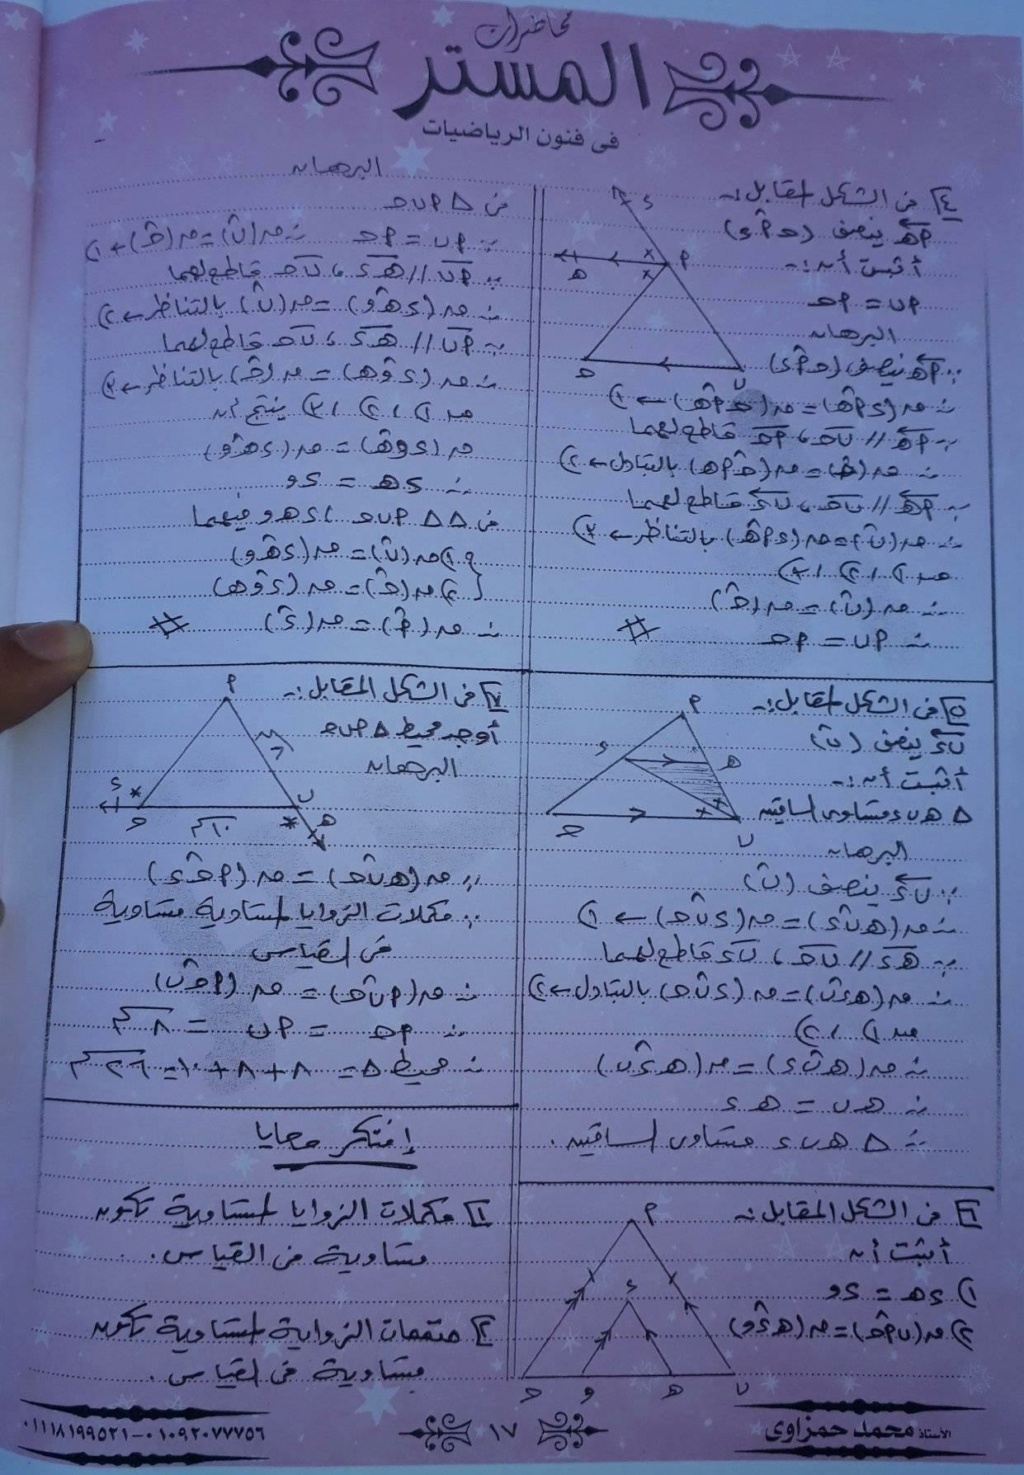 محاضرات
المستر
فى فنون الرياضيات
[٤] فى الشكل المقابل :-
أهـ ينصف (حـ أ̂ ء)
أثبت أن :-
أب = أحـ
البرهان
∵ أهـ ينصف (حـ أ̂ ء)
∴ ∵ أهـ // ب حـ ، أحـ قاطع لهما
∴ ق(حـ̂) = ق(حـ أ̂ هـ) بالتبادل ← ٢
∵ أهـ // ب حـ ، ب ء قاطع لهما
∴ ق(ب̂) = ق(ء أ̂ هـ) بالتناظر ← ٣
من ١ ، ٢ ، ٣
∴ ق(ب̂) = ق(حـ̂)
∴ أب = أحـ #
البرهان
فى Δ أ ب حـ
∵ أب = أحـ ∴ ق(ب̂) = ق(حـ̂) ← ١
∵ أب // ء هـ ، ب حـ قاطع لهما
∴ ق(ء هـ̂ و) = ق(ب̂) بالتناظر ← ٢
∴ ق(ء و̂ هـ) = ق(حـ̂) بالتناظر ← ٣
من ١ ، ٢ ، ٣ ينتج أن
ق(ء و̂ هـ) = ق(ء هـ̂ و)
∴ ء هـ = ء و
فى Δ Δ أ ب حـ ، ء هـ و فيهما
١ ق(ب̂) = ق(ء هـ̂ و)
٢ ق(حـ̂) = ق(ء و̂ هـ)
∴ ق(أ̂) = ق(ء̂) #
[٥] فى الشكل المقابل :-
ب ء ينصف (ب̂)
أثبت أن :-
Δ هـ ب ء متساوى الساقين
البرهان
∵ ب ء ينصف (ب̂)
∴ ق(هـ ب̂ ء) = ق(ء ب̂ حـ) ← ١
∵ ء هـ // ب حـ ، ب ء قاطع لهما
∴ ق(هـ ء̂ ب) = ق(ء ب̂ حـ) بالتبادل ← ٢
من ١ ، ٢
∴ ق(هـ ب̂ ء) = ق(هـ ء̂ ب)
∴ هـ ب = هـ ء
∴ Δ هـ ب ء متساوى الساقين .
[٧] فى الشكل المقابل :-
أوجد محيط Δ أ ب حـ
البرهان
٨سم
١٠سم
∵ ق(هـ ب̂ حـ) = ق(أ حـ̂ ء)
∵ مكملات الزوايا المتساوية متساوية
فى القياس
∴ ق(أ ب̂ حـ) = ق(أ حـ̂ ب)
∴ أحـ = أب = ٨سم
∴ محيط Δ = ٨ + ٨ + ١٠ = ٢٦سم
[٦] فى الشكل المقابل :-
أثبت أن
١) ء هـ = ء و
٢) ق(ب أ̂ حـ) = ق(هـ ء̂ و)
إفتكر معايا
[١] مكملات الزوايا المتساوية تكون
متساوية فى القياس .
[٢] متممات الزواية المتساوية تكون
متساوية فى القياس .
الأستاذ محمد حمزاوى
١٧
٠١١١٨١٩٩٥٢١-٠١٠٩٢٠٧٧٧٥٦